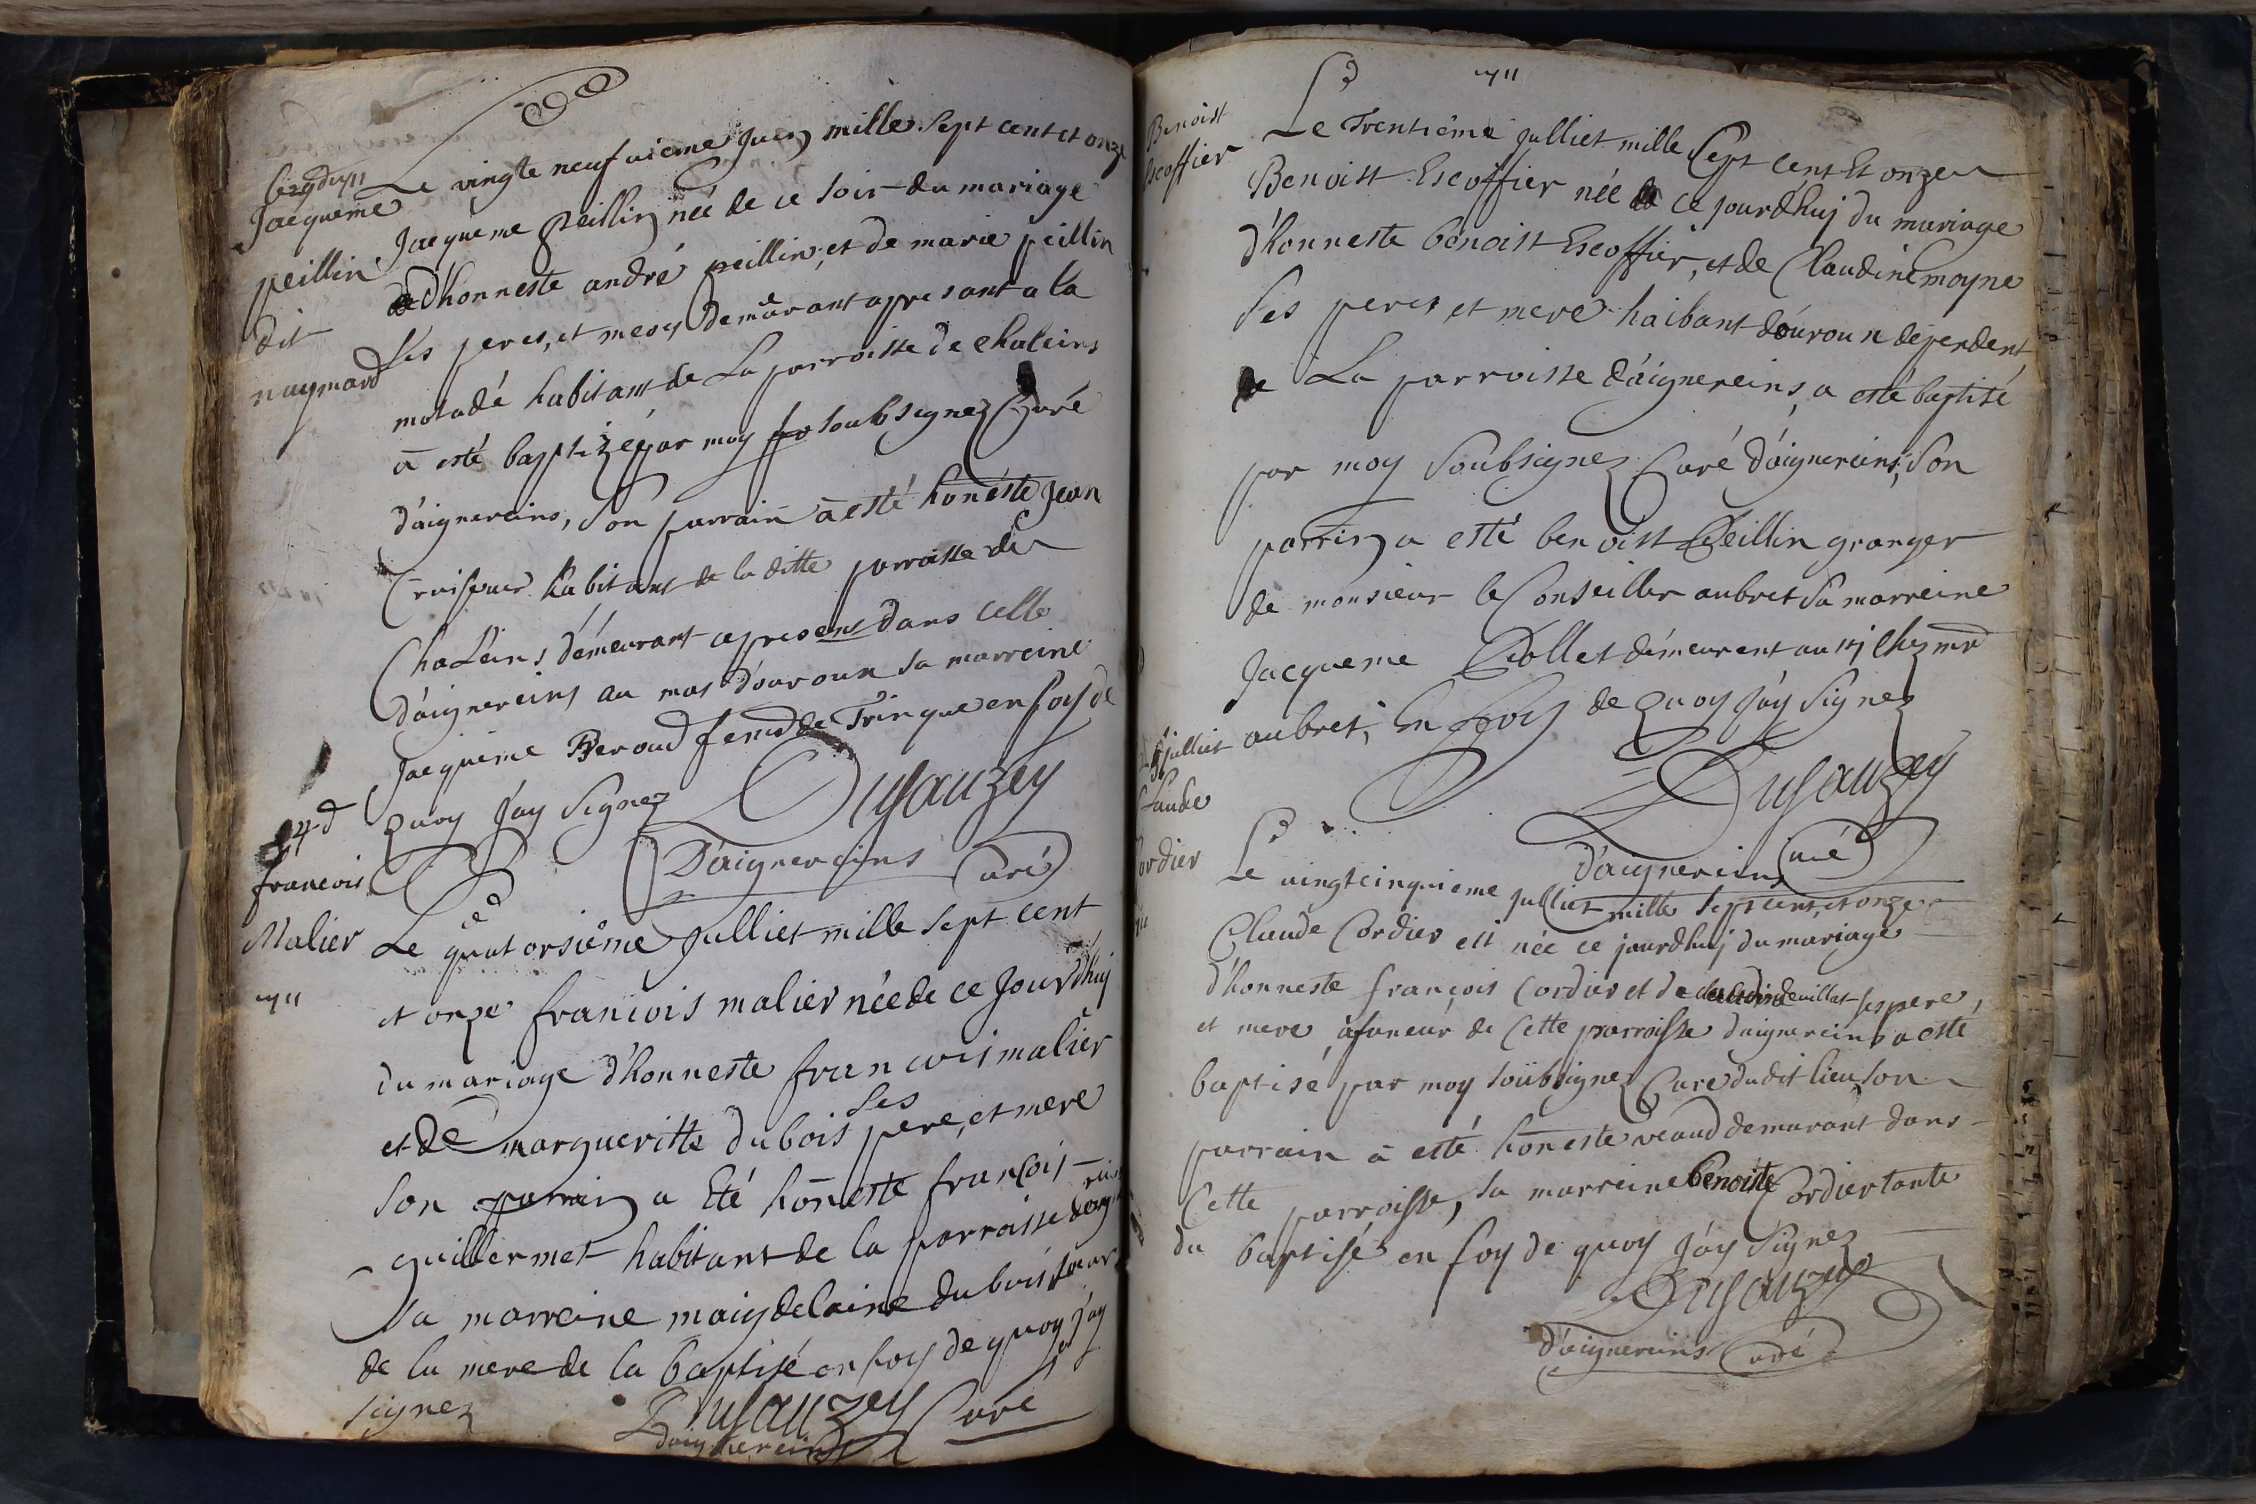 Le 29 dud 1711
Jacqueme
peillin
dit
naymard
Le vingte neufuieme Juen mille Sept cent et onze
Jacqueme peillin née de ce soir du mariage
d'honneste andré peillin, et de marie peillin
ses peres, et mere demeurant apresant a la
motadé habitant de La parroisse de chaleins
a esté baptizé par moy soubsignez Curé
d'aignereins, Son parrain a esté honeste Jean
Cruiseur habitant de la ditte parroisse de
Chaleins démeurant apresent dans celle
d'aignereins au mas d'ouroun sa marreine
Jacqueme Beroud femd de Trinque en foy de
quoy J'ay Signez Dusauzey
D'aignereins Curé
14 d
francois
Malier
1711
Le quatorsieme Julliet mille sept cent
et onze francois malier née de ce Jourd'huj
du mariage d'honneste francois malier
et de margueritte dubois ses pere, et mere
Son parrain a Eté honeste francois
guillermet habitant de la parroisse
Sa marreine maigdelaine dubois sœur
de la mere de la baptisé en foy de quoy j'ay
signez Dusauzey Curé
daignereins
1711
Benoist
Escoffier
Le Trentiéme Julliet mille Sept cent Et onze
Benoist Escoffier née ce jourd'huj du mariage
d'honneste benoist Escoffier, et de Claudine moyne
Ses peres et mere haibant d'ouroun dépendent
de La parroisse d'aignereins, a esté baptisé
par moy Soubsignez Curé d'aignereins, Son
parrin a esté benoist Peillin granger
de monsieur le Conseiller aubret Sa marreine
Jacqueme Collet démeurent au chez mr
aubret, En foy de quoy J'ay Signez
Dusauzey
d'aignereins Curé
julliet
Claude
Cordier
Le vingtcinquieme Julliet mille Sept cent, et onze
Claude Cordier est née ce jourdhuj du mariage
d'honneste françois Cordier et de deuillat ses pere,
et mere, afaneur de Cette parroisse daignereins a esté
baptisé, par moy soubsignez Curé dudit lieu son
parrain a esté honeste veaud demurant dans
Cette parroisse, sa marreine benoiste Cordier tante
du baptisé en foy de quoy J'ay Signez
Dusauzey
d'aignereins Curé